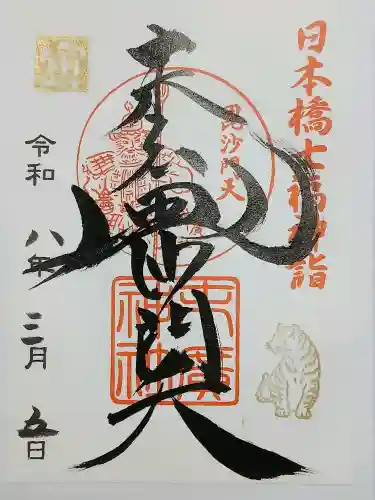 日本橋七福神詣
毘沙門天
毘沙門天
末廣
神社
令和八年三月五日